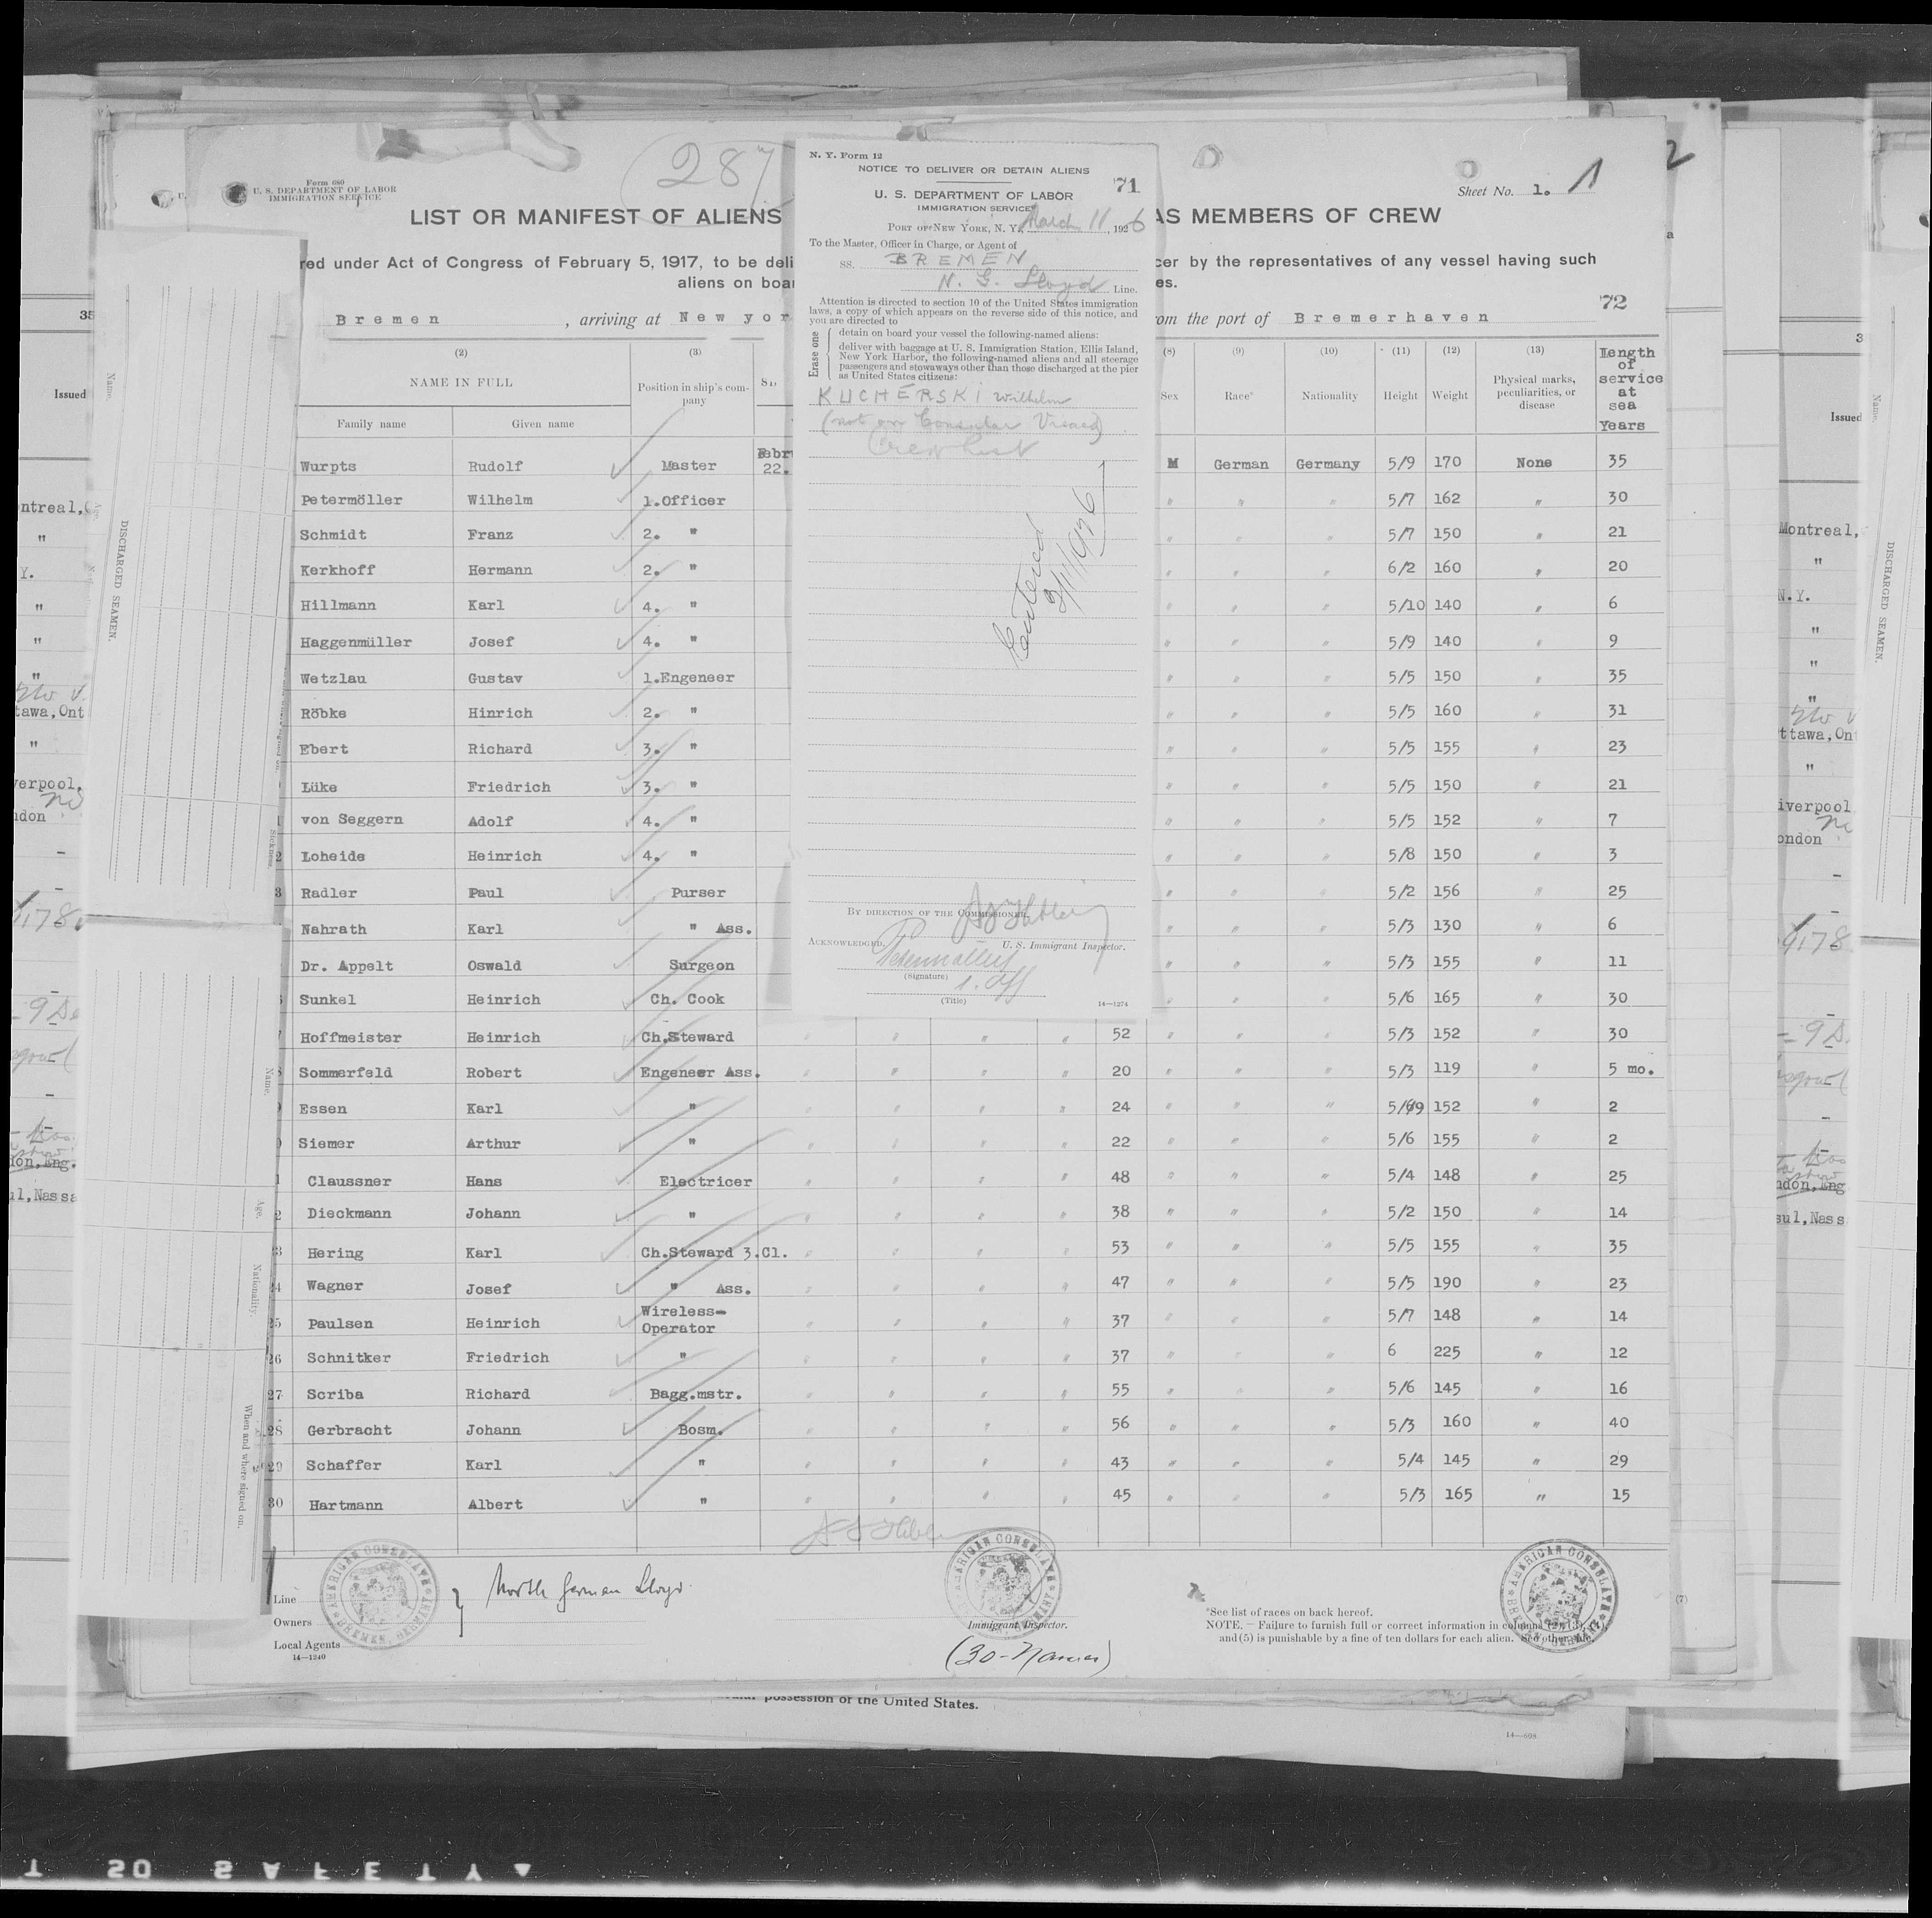 Form 680
U. S. DEPARTMENT OF LABOR
IMMIGRATION SERVICE
287
Sheet No. 1. 1
2
LIST OR MANIFEST OF ALIENS
AS MEMBERS OF CREW
red under Act of Congress of February 5, 1917, to be deli
cer by the representatives of any vessel having such
aliens on boar
es.
72
Bremen , arriving at New yor
om the port of Bremerhaven
N. Y. Form 12
NOTICE TO DELIVER OR DETAIN ALIENS
71
U. S. DEPARTMENT OF LABOR
IMMIGRATION SERVICE
PORT OF NEW YORK, N. Y. March 11, 1926
To the Master, Officer in Charge, or Agent of
SS. BREMEN
N. G. Lloyd Line.
Attention is directed to section 10 of the United States immigration
laws, a copy of which appears on the reverse side of this notice, and
you are directed to
Erase one
detain on board your vessel the following-named aliens:
deliver with baggage at U. S. Immigration Station, Ellis Island,
New York Harbor, the following-named aliens and all steerage
passengers and stowaways other than those discharged at the pier
as United States citizens:
KUCHERSKI Wilhelm
(not on Consular Visaed)
Crew List
Entered
3/11/1926
BY DIRECTION OF THE COMMISSIONER,
U. S. Immigrant Inspector.
ACKNOWLEDGED, Petermöller
(Signature)
1. Off
(Title)
14—1274
(2) (3) (8) (9) (10) (11) (12) (13)
NAME IN FULL
Family name Given name
Position in ship's company
Sex Race* Nationality Height Weight Physical marks, peculiarities, or disease Length of service at sea Years
Wurpts Rudolf Master Febru 22. M German Germany 5/9 170 None 35
Petermöller Wilhelm 1.Officer " " " 5/7 162 " 30
Schmidt Franz 2. " " " " 5/7 150 " 21
Kerkhoff Hermann 2. " " " " 6/2 160 " 20
Hillmann Karl 4. " " " " 5/10 140 " 6
Haggenmüller Josef 4. " " " " 5/9 140 " 9
Wetzlau Gustav 1.Engeneer " " " 5/5 150 " 35
Röbke Hinrich 2. " " " " 5/5 160 " 31
Ebert Richard 3. " " " " 5/5 155 " 23
Lüke Friedrich 3. " " " " 5/5 150 " 21
von Seggern Adolf 4. " " " " 5/5 152 " 7
Loheide Heinrich 4. " " " " 5/8 150 " 3
Radler Paul Purser " " " 5/2 156 " 25
Nahrath Karl " Ass. " " " 5/3 130 " 6
Dr. Appelt Oswald Surgeon " " " 5/3 155 " 11
Sunkel Heinrich Ch. Cook " " " 5/6 165 " 30
Hoffmeister Heinrich Ch.Steward " " " " 52 " " " 5/3 152 " 30
Sommerfeld Robert Engeneer Ass. " " " " 20 " " " 5/3 119 " 5 mo.
Essen Karl " " " " " 24 " " " 5/9 152 " 2
Siemer Arthur " " " " " 22 " " " 5/6 155 " 2
Claussner Hans Electricer " " " " 48 " " " 5/4 148 " 25
Dieckmann Johann " " " " " 38 " " " 5/2 150 " 14
Hering Karl Ch.Steward 3.Cl. " " " " 53 " " " 5/5 155 " 35
Wagner Josef " Ass. " " " " 47 " " " 5/5 190 " 23
Paulsen Heinrich Wireless-Operator " " " " 37 " " " 5/7 148 " 14
26 Schnitker Friedrich " " " " " 37 " " " 6 225 " 12
27 Scriba Richard Bagg.mstr. " " " " 55 " " " 5/6 145 " 16
28 Gerbracht Johann Bosm. " " " " 56 " " " 5/3 160 " 40
29 Schaffer Karl " " " " " 43 " " " 5/4 145 " 29
30 Hartmann Albert " " " " " 45 " " " 5/3 165 " 15
AMERICAN CONSULATE BREMEN
AMERICAN CONSULATE
AMERICAN CONSULATE BREMEN
Line
Owners
Local Agents
North German Lloyd
14—1240
Immigrant Inspector.
(30-Names)
*See list of races on back hereof.
NOTE. — Failure to furnish full or correct information in columns
and (5) is punishable by a fine of ten dollars for each alien. See other side.
(7)
possession of the United States.
14—608
Name.
DISCHARGED SEAMEN.
Sickness
Name.
Age.
Nationality.
When and where signed on.
35
Issued
ntreal,
"
Y.
"
"
"
tawa, Ont
"
verpool,
ndon
178
don, Eng.
ul, Nassa
3
Issued
Montreal,
"
N.Y.
"
"
"
ttawa, On
"
iverpool
ondon
178
ndon, Eng
sul, Nass
Name.
DISCHARGED SEAMEN.
T 50 SAFETY